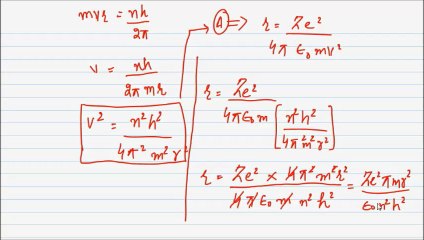 mvr = nh/2π
v = nh/2π mr
v² = n²h²/4π² m² r²
④ ⇒ r = Ze²/4π ε₀ mv²
r = Ze²/4πε₀ m [n²h²/4π²m²r²]
r = Ze² × 4π² m² r²/4π ε₀ m n² h² = Ze²πmr²/ε₀ n² h²